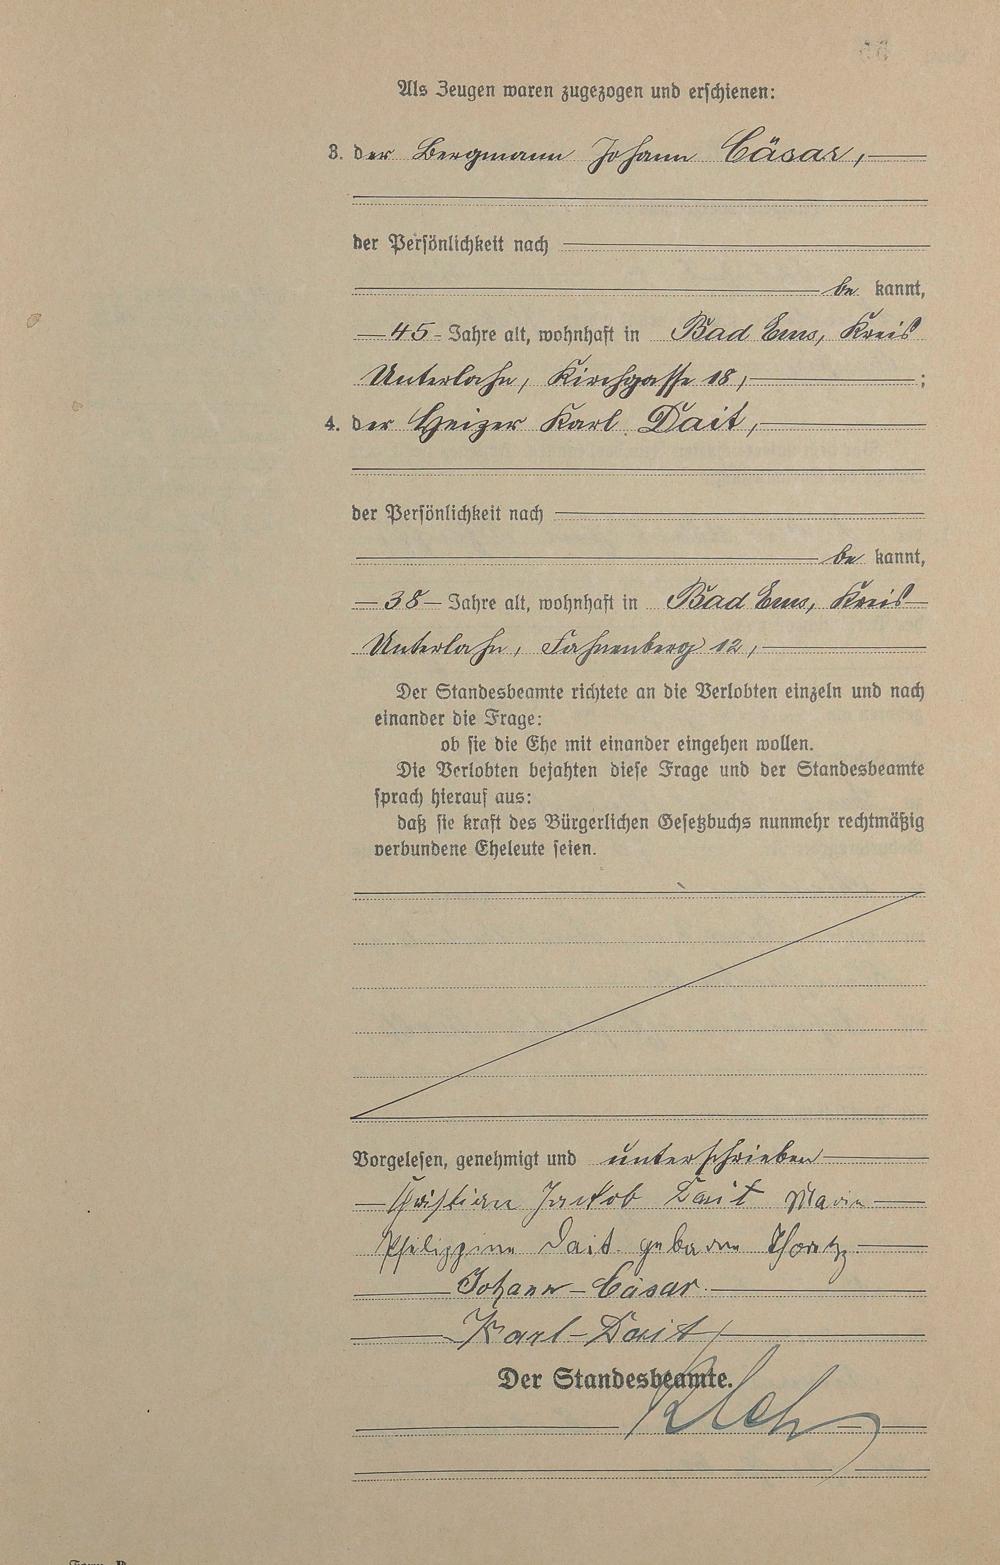 Als Zeugen waren zugezogen und erschienen:
3. der Bergmann Johann Cäsar,
der Persönlichkeit nach
be kannt,
45 Jahre alt, wohnhaft in Bad Ems, Kreis
Unterlahn, Kirchgasse 18, ;
4. der Heizer Karl Dait,
der Persönlichkeit nach
be kannt,
38 Jahre alt, wohnhaft in Bad Ems, Kreis
Unterlahn, Fahnenberg 12,
Der Standesbeamte richtete an die Verlobten einzeln und nach
einander die Frage:
ob sie die Ehe mit einander eingehen wollen.
Die Verlobten bejahten diese Frage und der Standesbeamte
sprach hierauf aus:
daß sie kraft des Bürgerlichen Gesetzbuchs nunmehr rechtmäßig
verbundene Eheleute seien.
Vorgelesen, genehmigt und unterschrieben
Christian Jakob Dait Maria
Philippine Dait geborne
Johann Cäsar
Karl Dait
Der Standesbeamte.